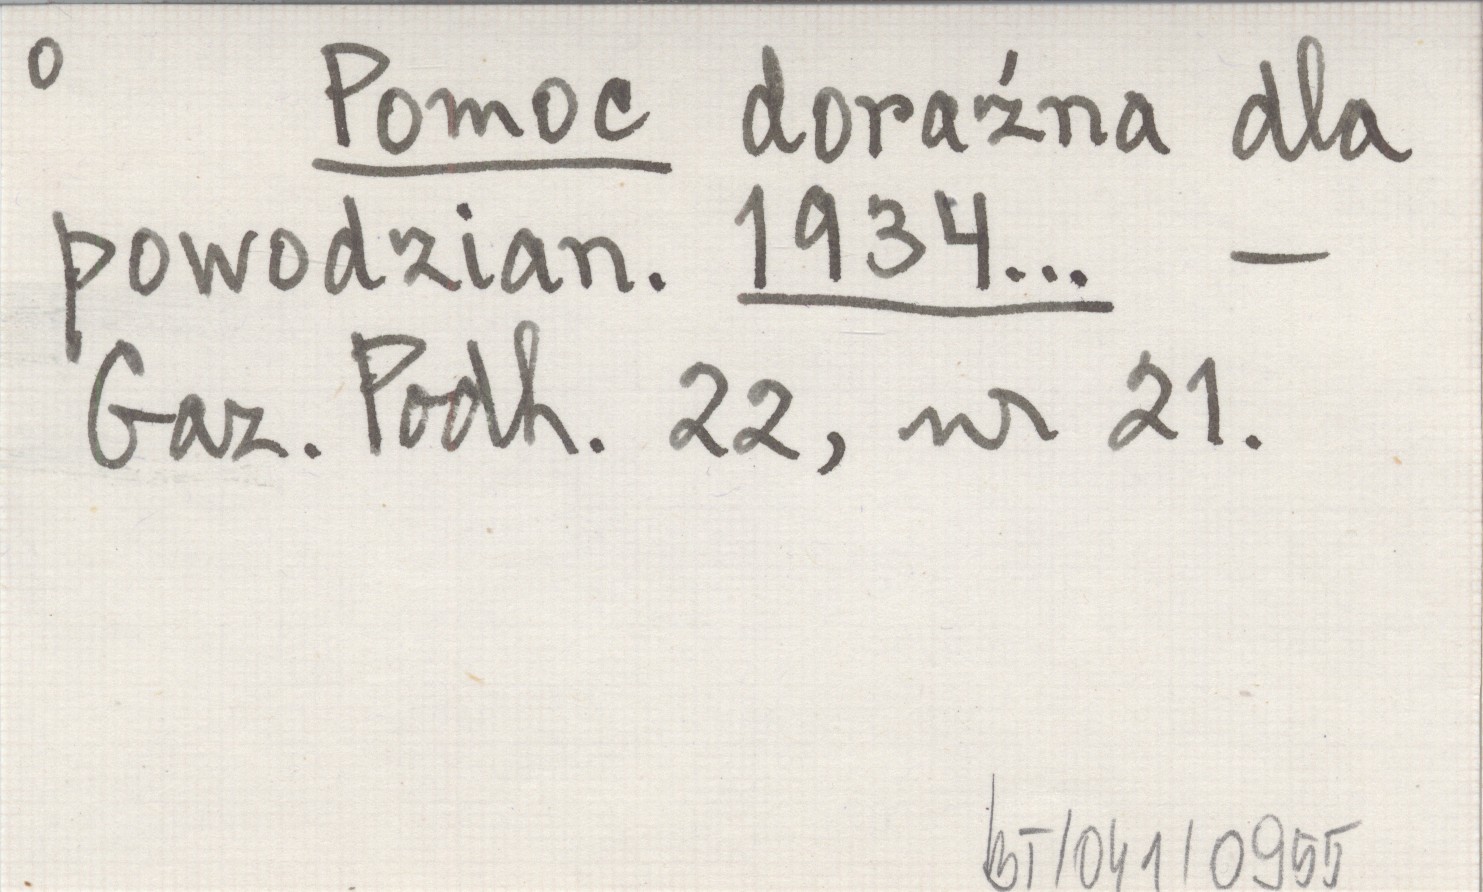 o Pomoc doraźna dla
powodzian. 1934... —
Gaz. Podh. 22, nr 21.
BT/041/0955